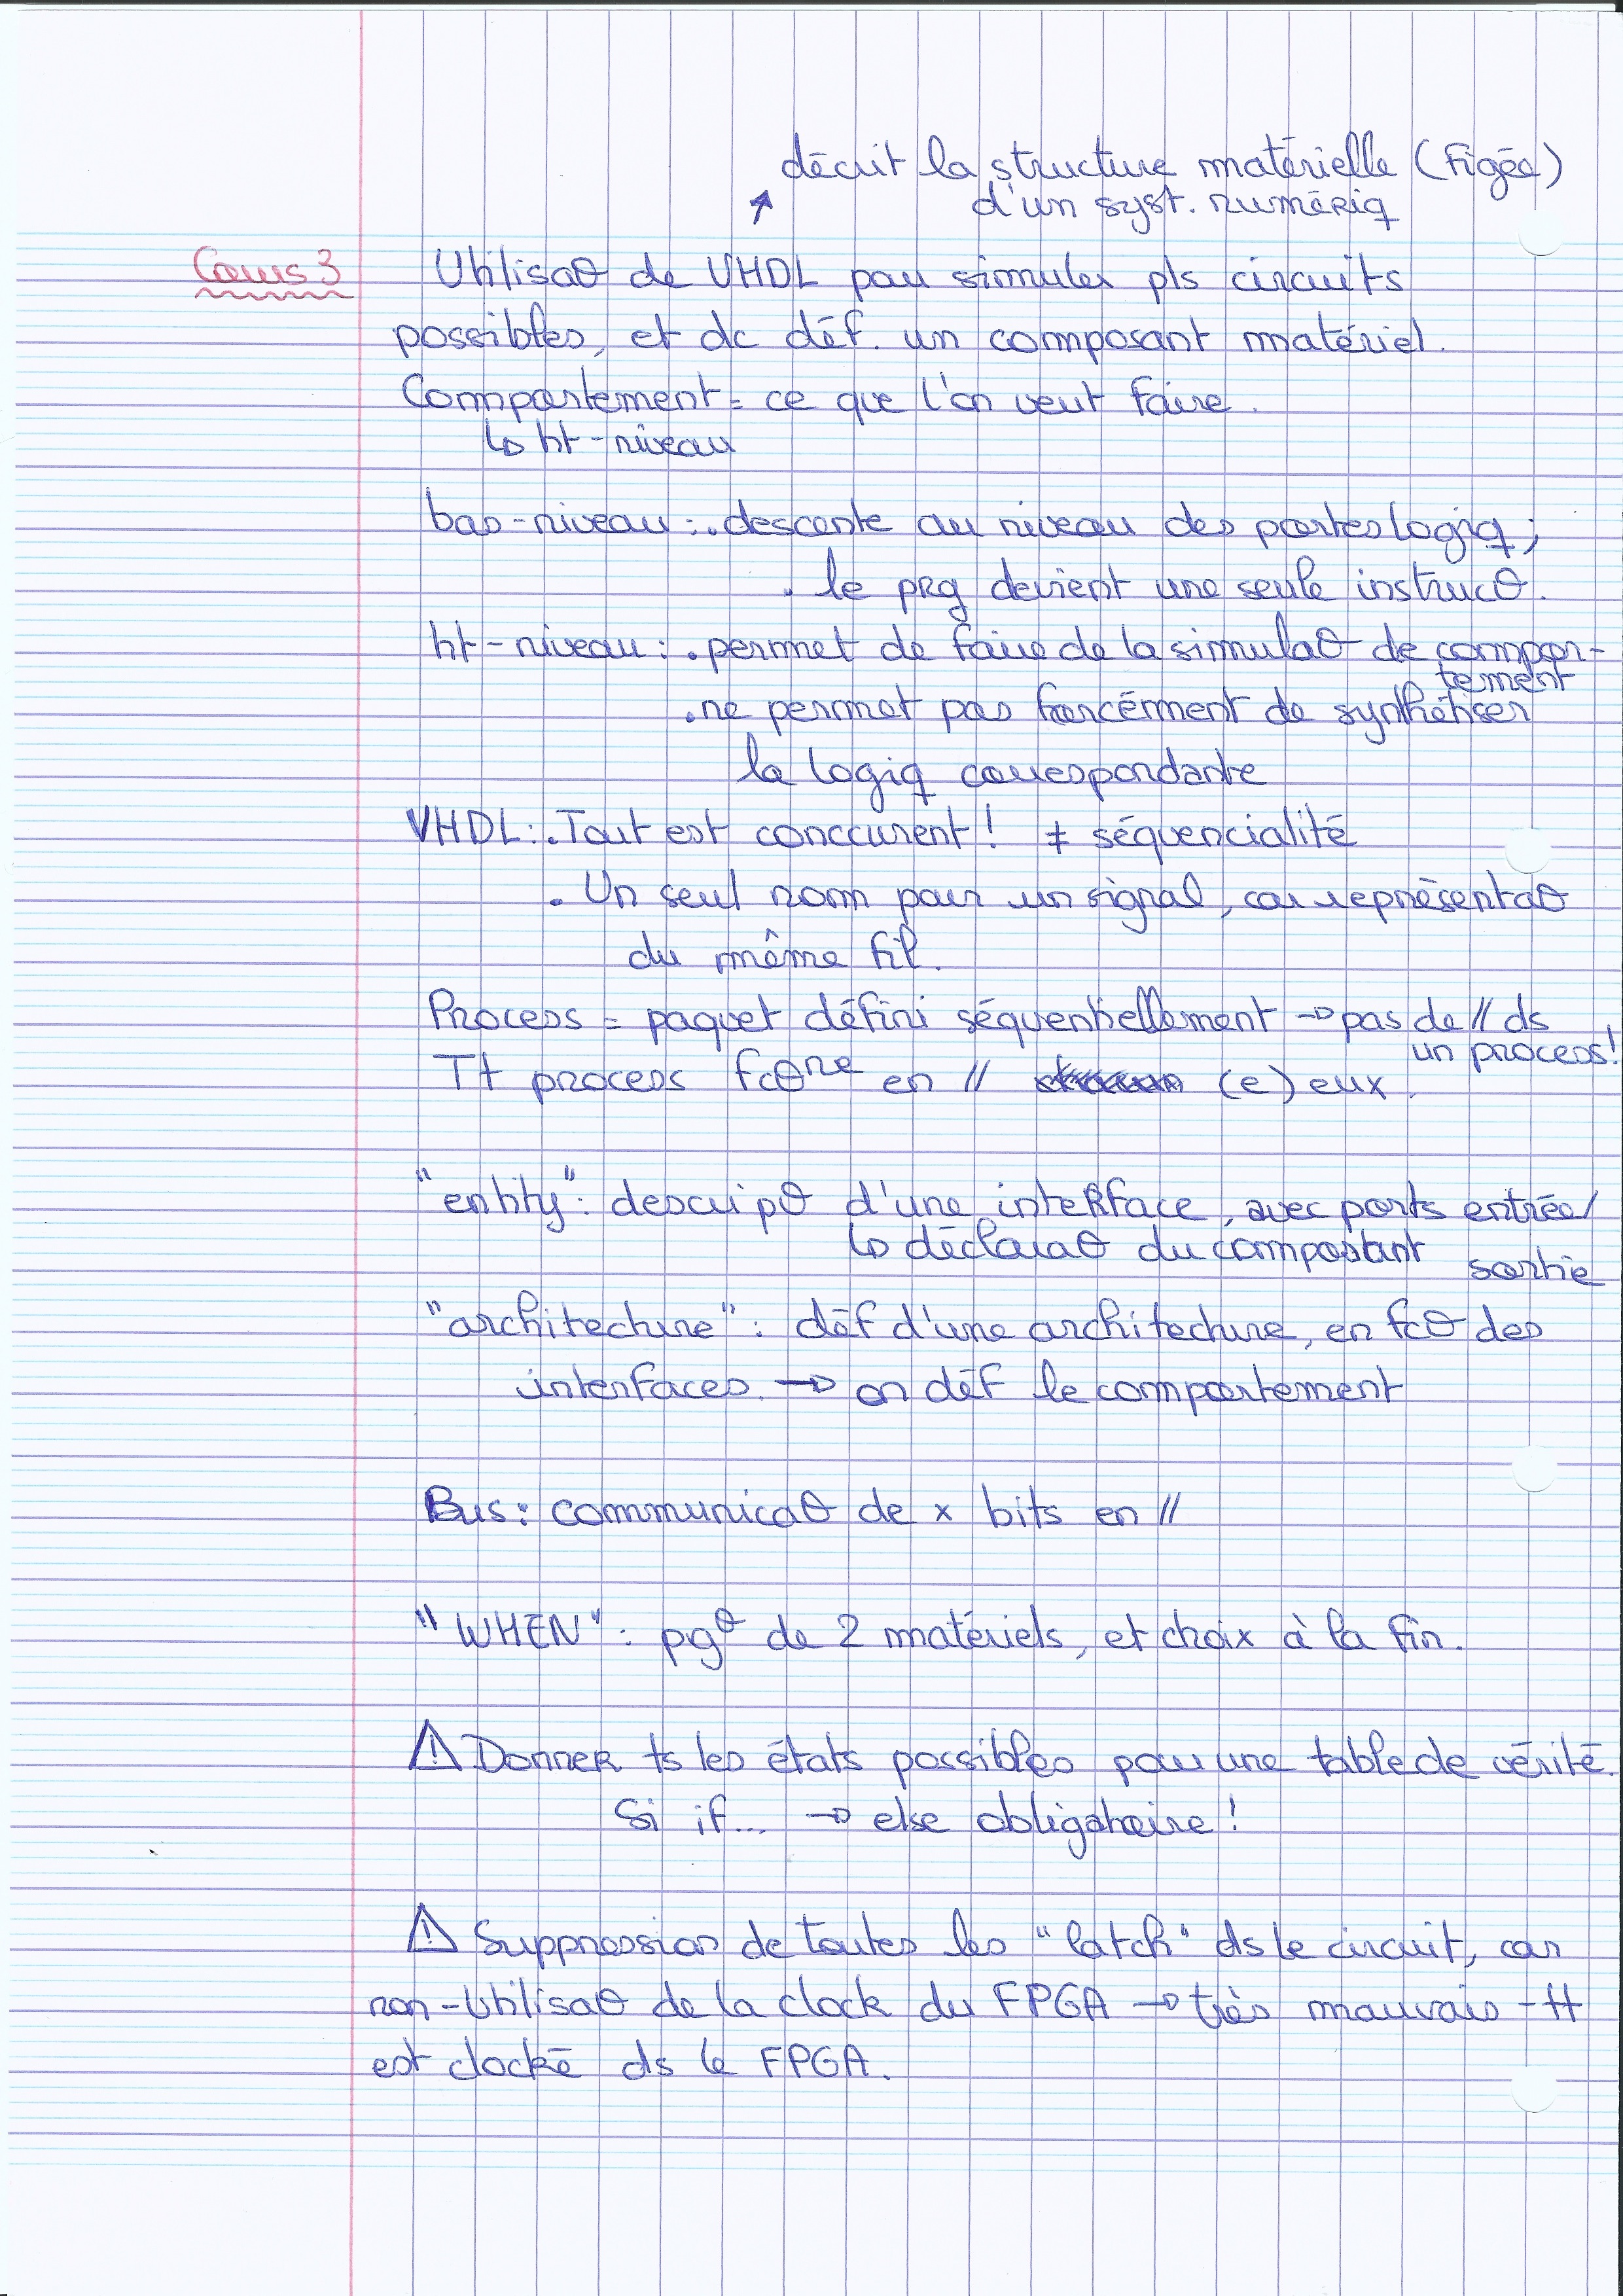 décrit la structure matérielle (figée)
d'un syst. numériq
Cours 3
Utilisaθ de VHDL pour simuler pls circuits
possibles, et dc déf. un composant matériel.
Comportement = ce que l'on veut faire.
↳ ht-niveau
bas-niveau : . descente au niveau des portes logiq ;
. le prg devient une seule instrucθ.
ht-niveau : . permet de faire de la simulaθ de compor-
tement
. ne permet pas forcément de synthétiser
la logiq correspondante
VHDL : . Tout est conccurent ! ≠ séquencialité
. Un seul nom pour un signal, car représentaθ
du même fil.
Process = paquet défini séquentiellement → pas de // ds
un process !
Tt process fcθne en // (e) eux.
"entity" : descripθ d'une interface, avec ports entrée/
↳ déclaraθ du composant
sortie
"architecture" : déf d'une architecture, en fcθ des
interfaces. → on déf le comportement
Bus : communicaθ de x bits en //
"WHEN" : pgθ de 2 matériels, et choix à la fin.
⚠ Donner ts les états possibles pour une table de vérité.
Si if... → else obligatoire !
⚠ Suppression de toutes les "latch" ds le circuit, car
non-utilisaθ de la clock du FPGA → très mauvais - tt
est clocké ds le FPGA.